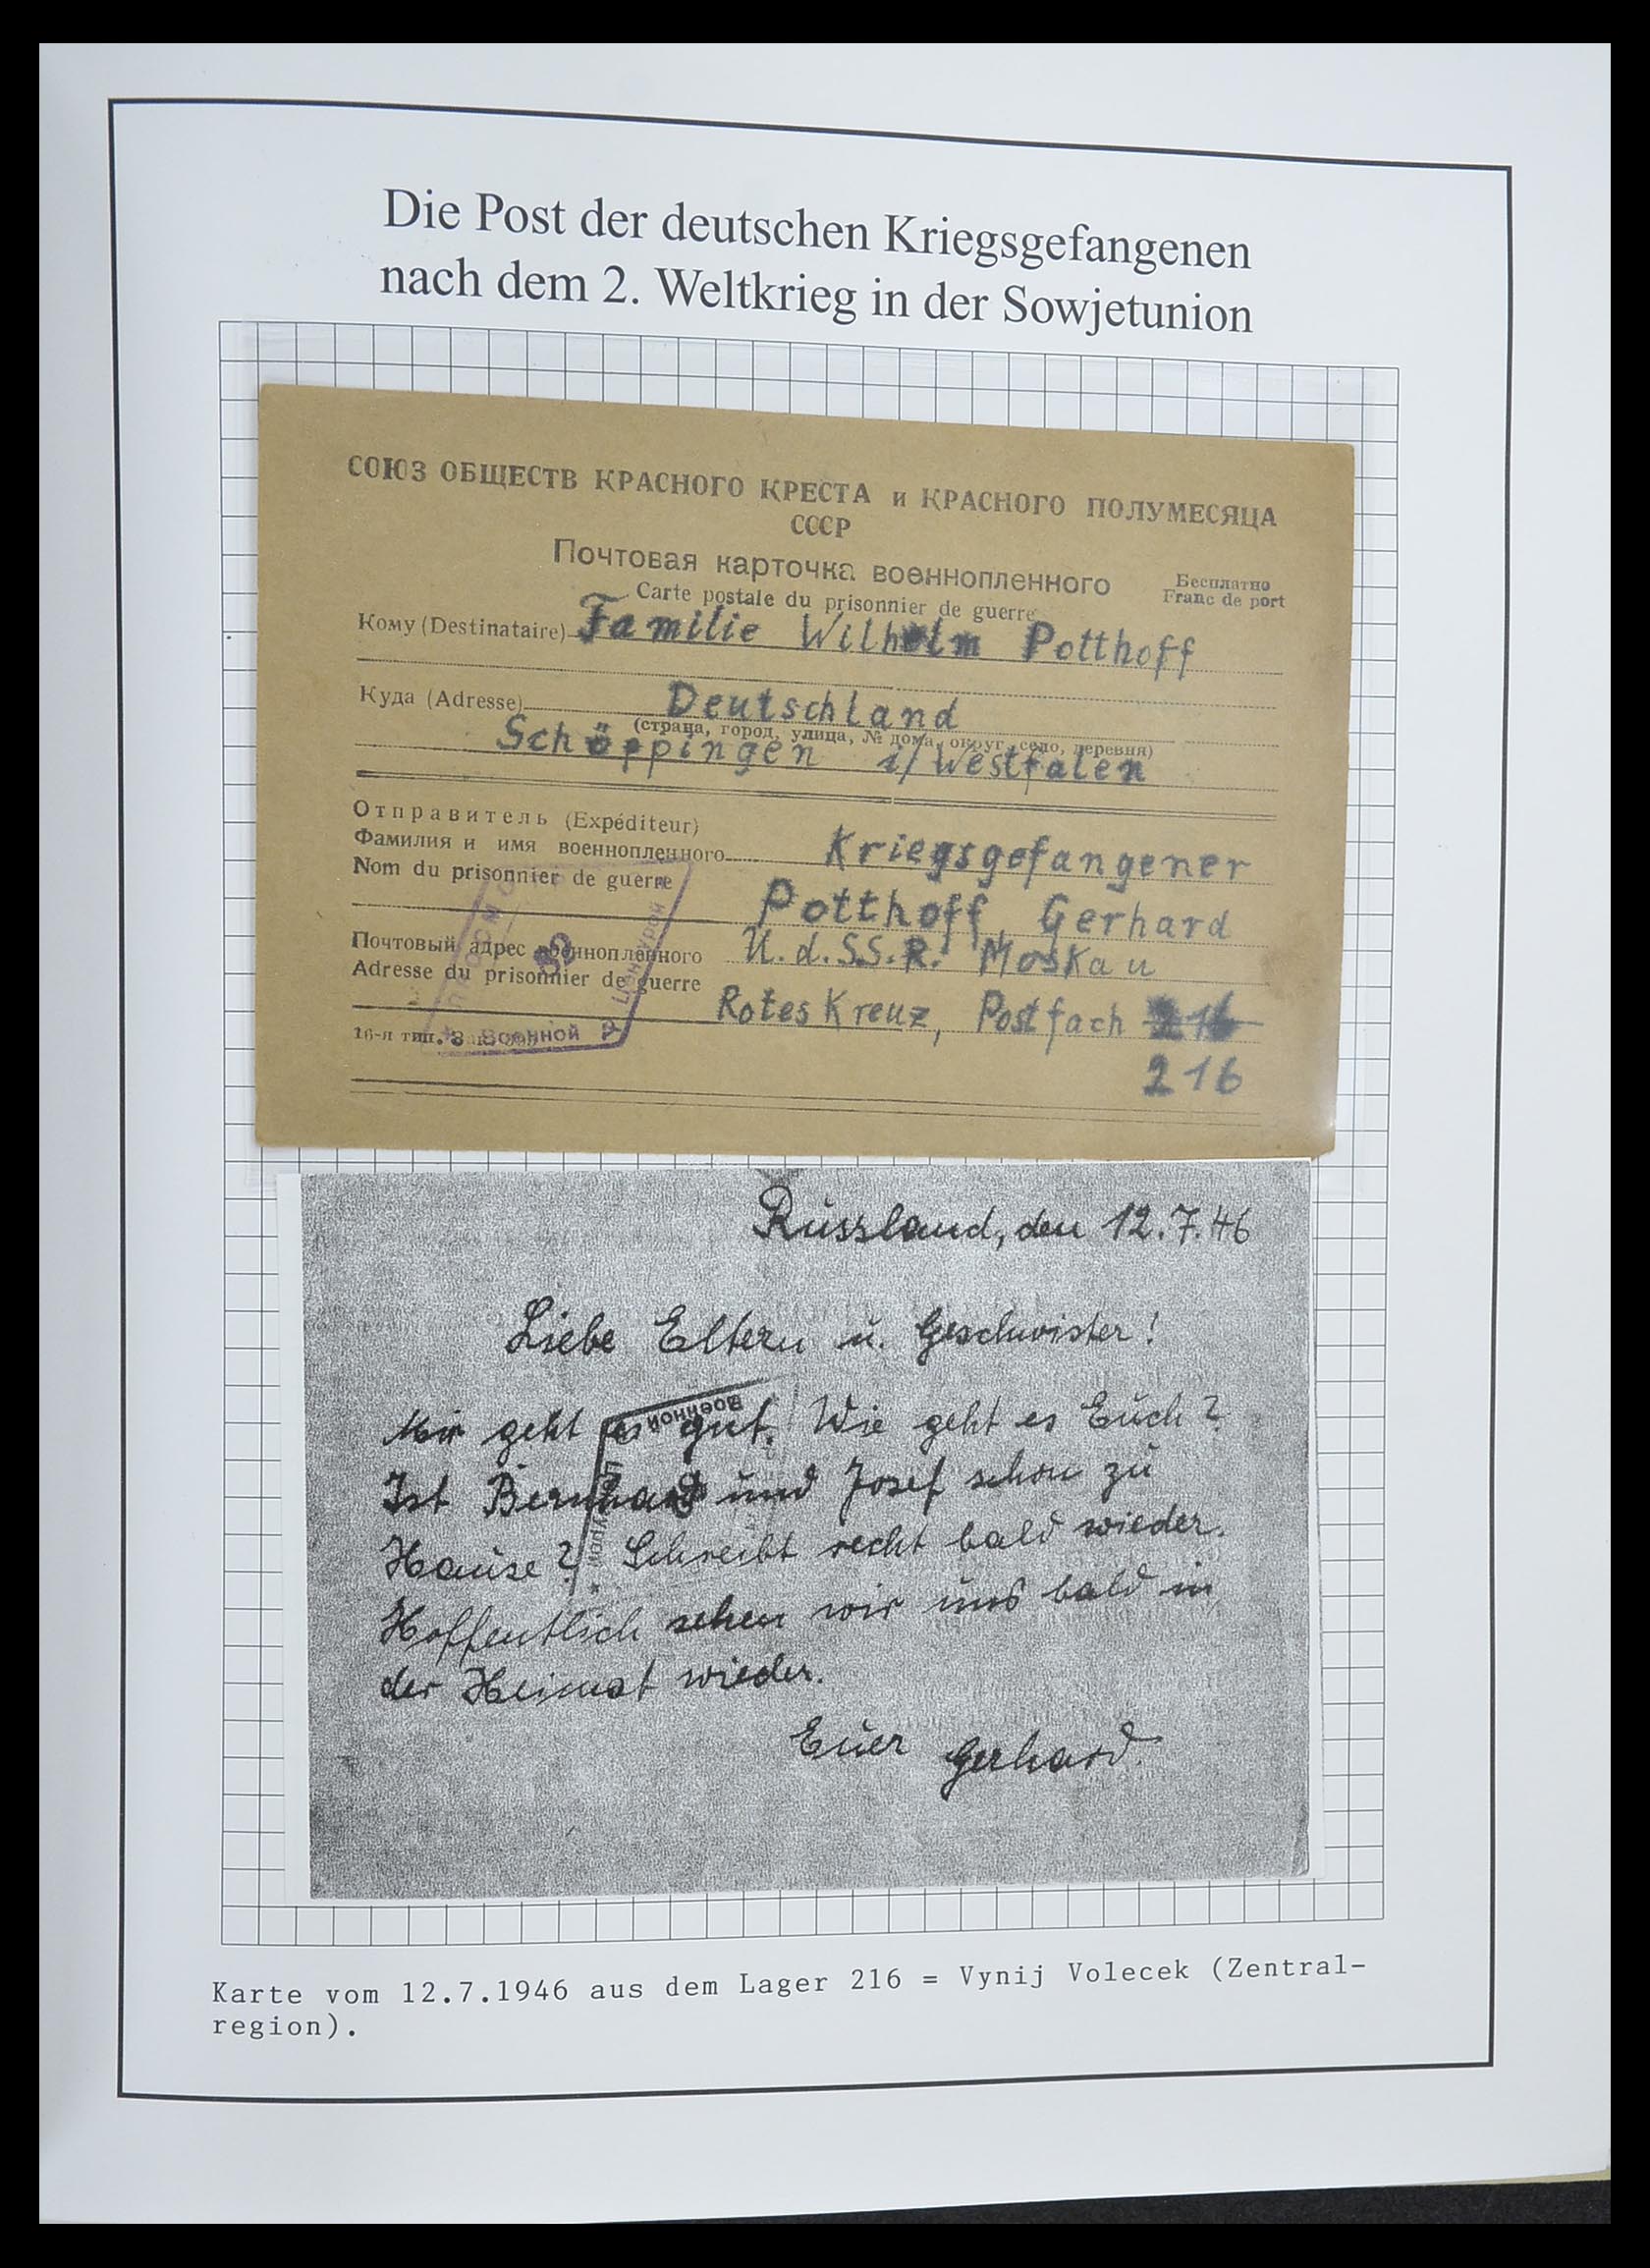 Die Post der deutschen Kriegsgefangenen
nach dem 2. Weltkrieg in der Sowjetunion
СОЮЗ ОБЩЕСТВ КРАСНОГО КРЕСТА и КРАСНОГО ПОЛУМЕСЯЦА
СССР
Почтовая карточка военнопленного
Carte postale du prisonnier de guerre
Бесплатно
Franc de port
Кому (Destinataire) Familie Wilhelm Potthoff
Куда (Adresse) Deutschland
(страна, город, улица, № дома, округ, село, деревня)
Schöppingen i/Westfalen
Отправитель (Expéditeur)
Фамилия и имя военнопленного Kriegsgefangener
Nom du prisonnier de guerre
Potthoff, Gerhard
Почтовый адрес военнопленного U.d.S.S.R. Moskau
Adresse du prisonnier de guerre
Rotes Kreuz, Postfach 216
16-я тип. З
Военной
Цензурой
216
Russland, den 12.7.46
Liebe Eltern u. Geschwister!
Mir geht es gut. Wie geht es Euch?
Военной
Ist Bernhard und Josef schon zu
Hause? Schreibt recht bald wieder.
Hoffentlich sehen wir uns bald in
der Heimat wieder.
Euer Gerhard.
Karte vom 12.7.1946 aus dem Lager 216 = Vynij Volecek (Zentral-
region).